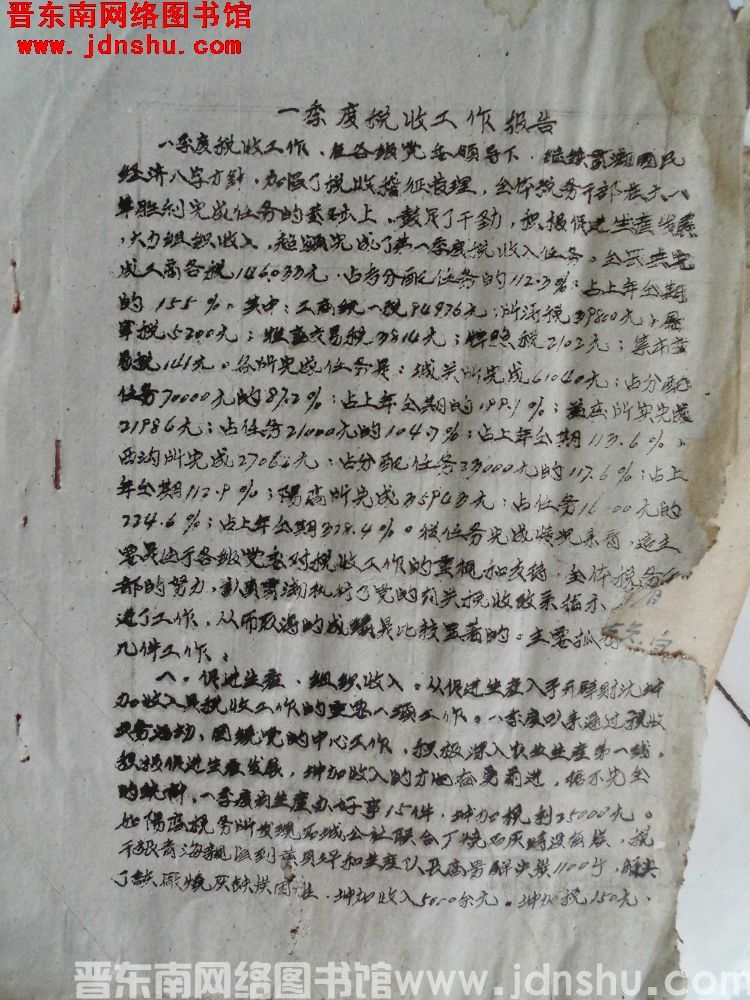 晋东南网络图书馆
www.jdnshu.com
一季度税收工作报告
一季度税收工作，在各级党委领导下，继续贯彻国民
经济八字方针，加强了税收稽征管理，全体税务干部在六一
年胜利完成任务的基础上，鼓足了干劲，积极促进生产发展
，大力组织收入，超额完成了第一季度税收入任务。全县共完
成工商各税146033元，占专分配任务的112.3%；占上年全期
的155%。其中：工商统一税94976元；所得税39800元；屠
宰税5200元；牲畜交易税3814元；牌照税2102元；集市交
易税141元。各所完成任务是：城关所完成61040元；占分配
任务70000元的87.2%；占上年全期的199.9%；所实完成
21986元；占任务21000元的104.7%；占上年全期113.6%、
西沟所完成2706元；占分配任务23000元的117.6%；占上
年全期112.9%；阳高所完成35943元；占任务16 00元的
224.6%；占上年全期328.4%。从任务完成情况来看，这主
要是由于各级党委对税收工作的重视和支持，全体税务
部的努力，认真贯彻执行了党的有关税收政策指示
进了工作，从而取得的成绩是比较显著的。主要抓
几件工作：
一、促进生产、组织收入。从促进生产入手开辟财沅增
加收入是税收工作的重要一项工作。一季度以来通过税收
业务活动，围绕党的中心工作，积极深入农业生产第一线，
积极促进生产发展，增加收入的方面检查前进，据不完全
的统计，一季度为生产办好事15件，增加税利25000元。
如阳高税务所发现石城公社联合厂烧石灰时没有炭，税
干张青海亲自到黄贝坪和生产队长商量解决炭1100斤，解决
了缺炭烧灰缺炭困难，增加收入5000余元。增加税150元、
晋东南网络图书馆www.jdnshu.com